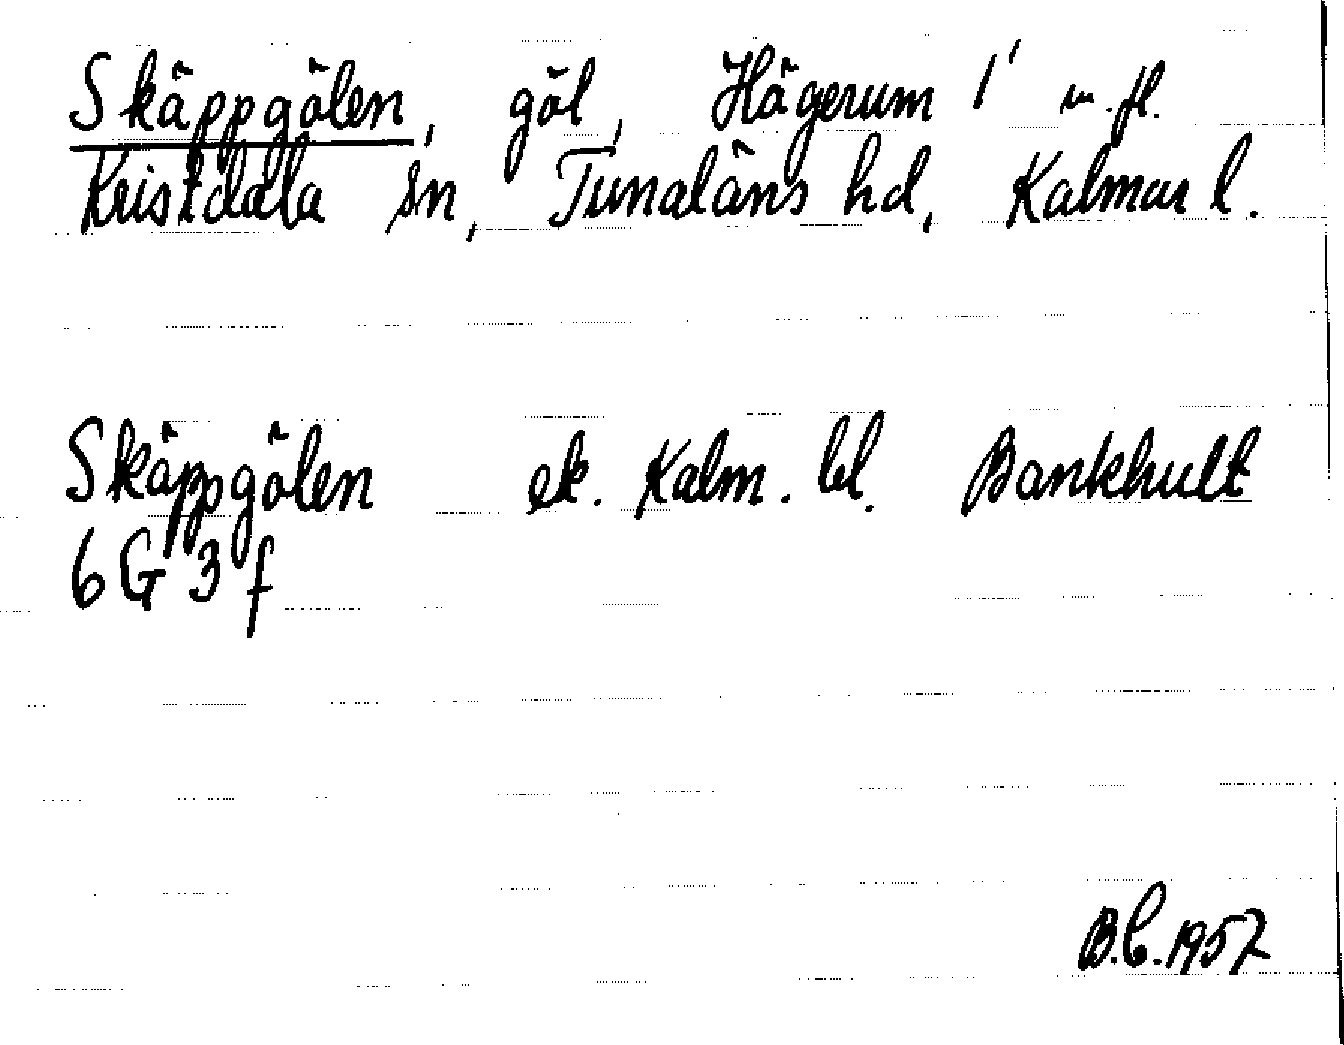 Skäppgölen, göl, Hägerum 1' m.fl.
Kristdala sn, Tunaläns hd, Kalmar l.
Skäppgölen ek. Kalm. bl. Bankhult
6 G 3 f
B.C. 1957